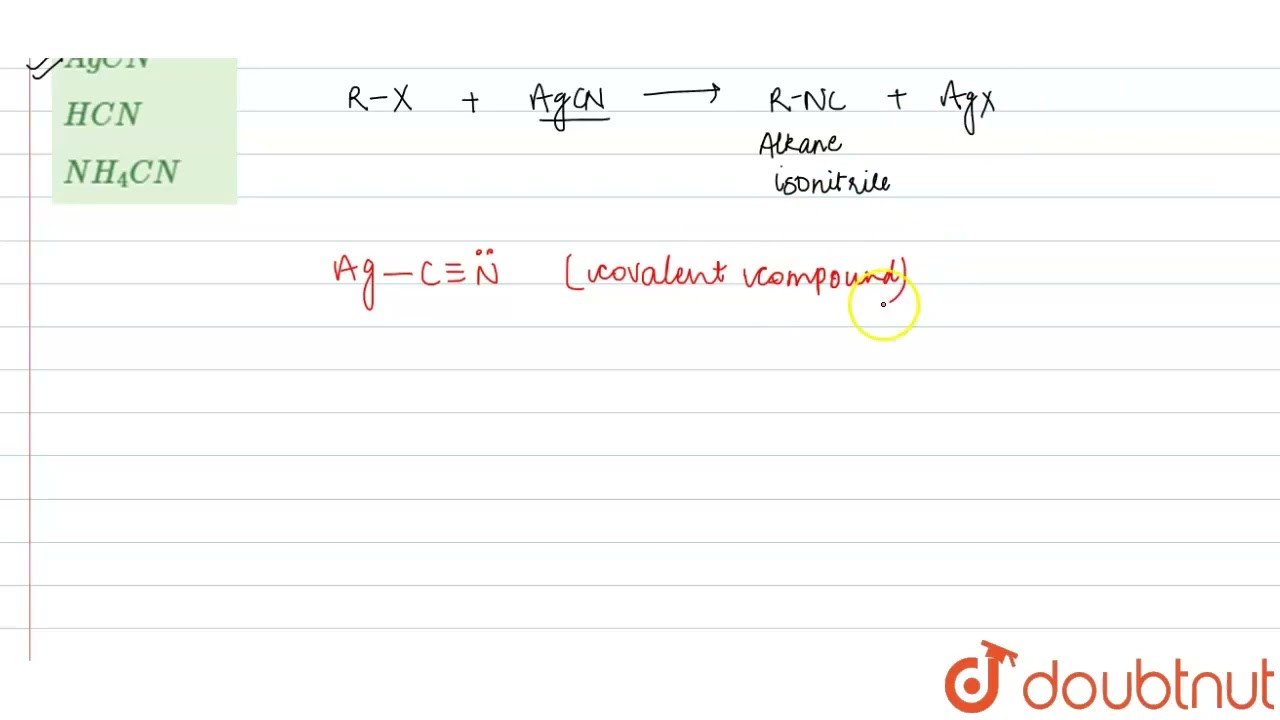 AgCN
HCN
NH₄CN
R-X + AgCN ⟶ R-NC + AgX
Alkane
isonitrile
Ag-C≡N̈ (covalent compound)
doubtnut